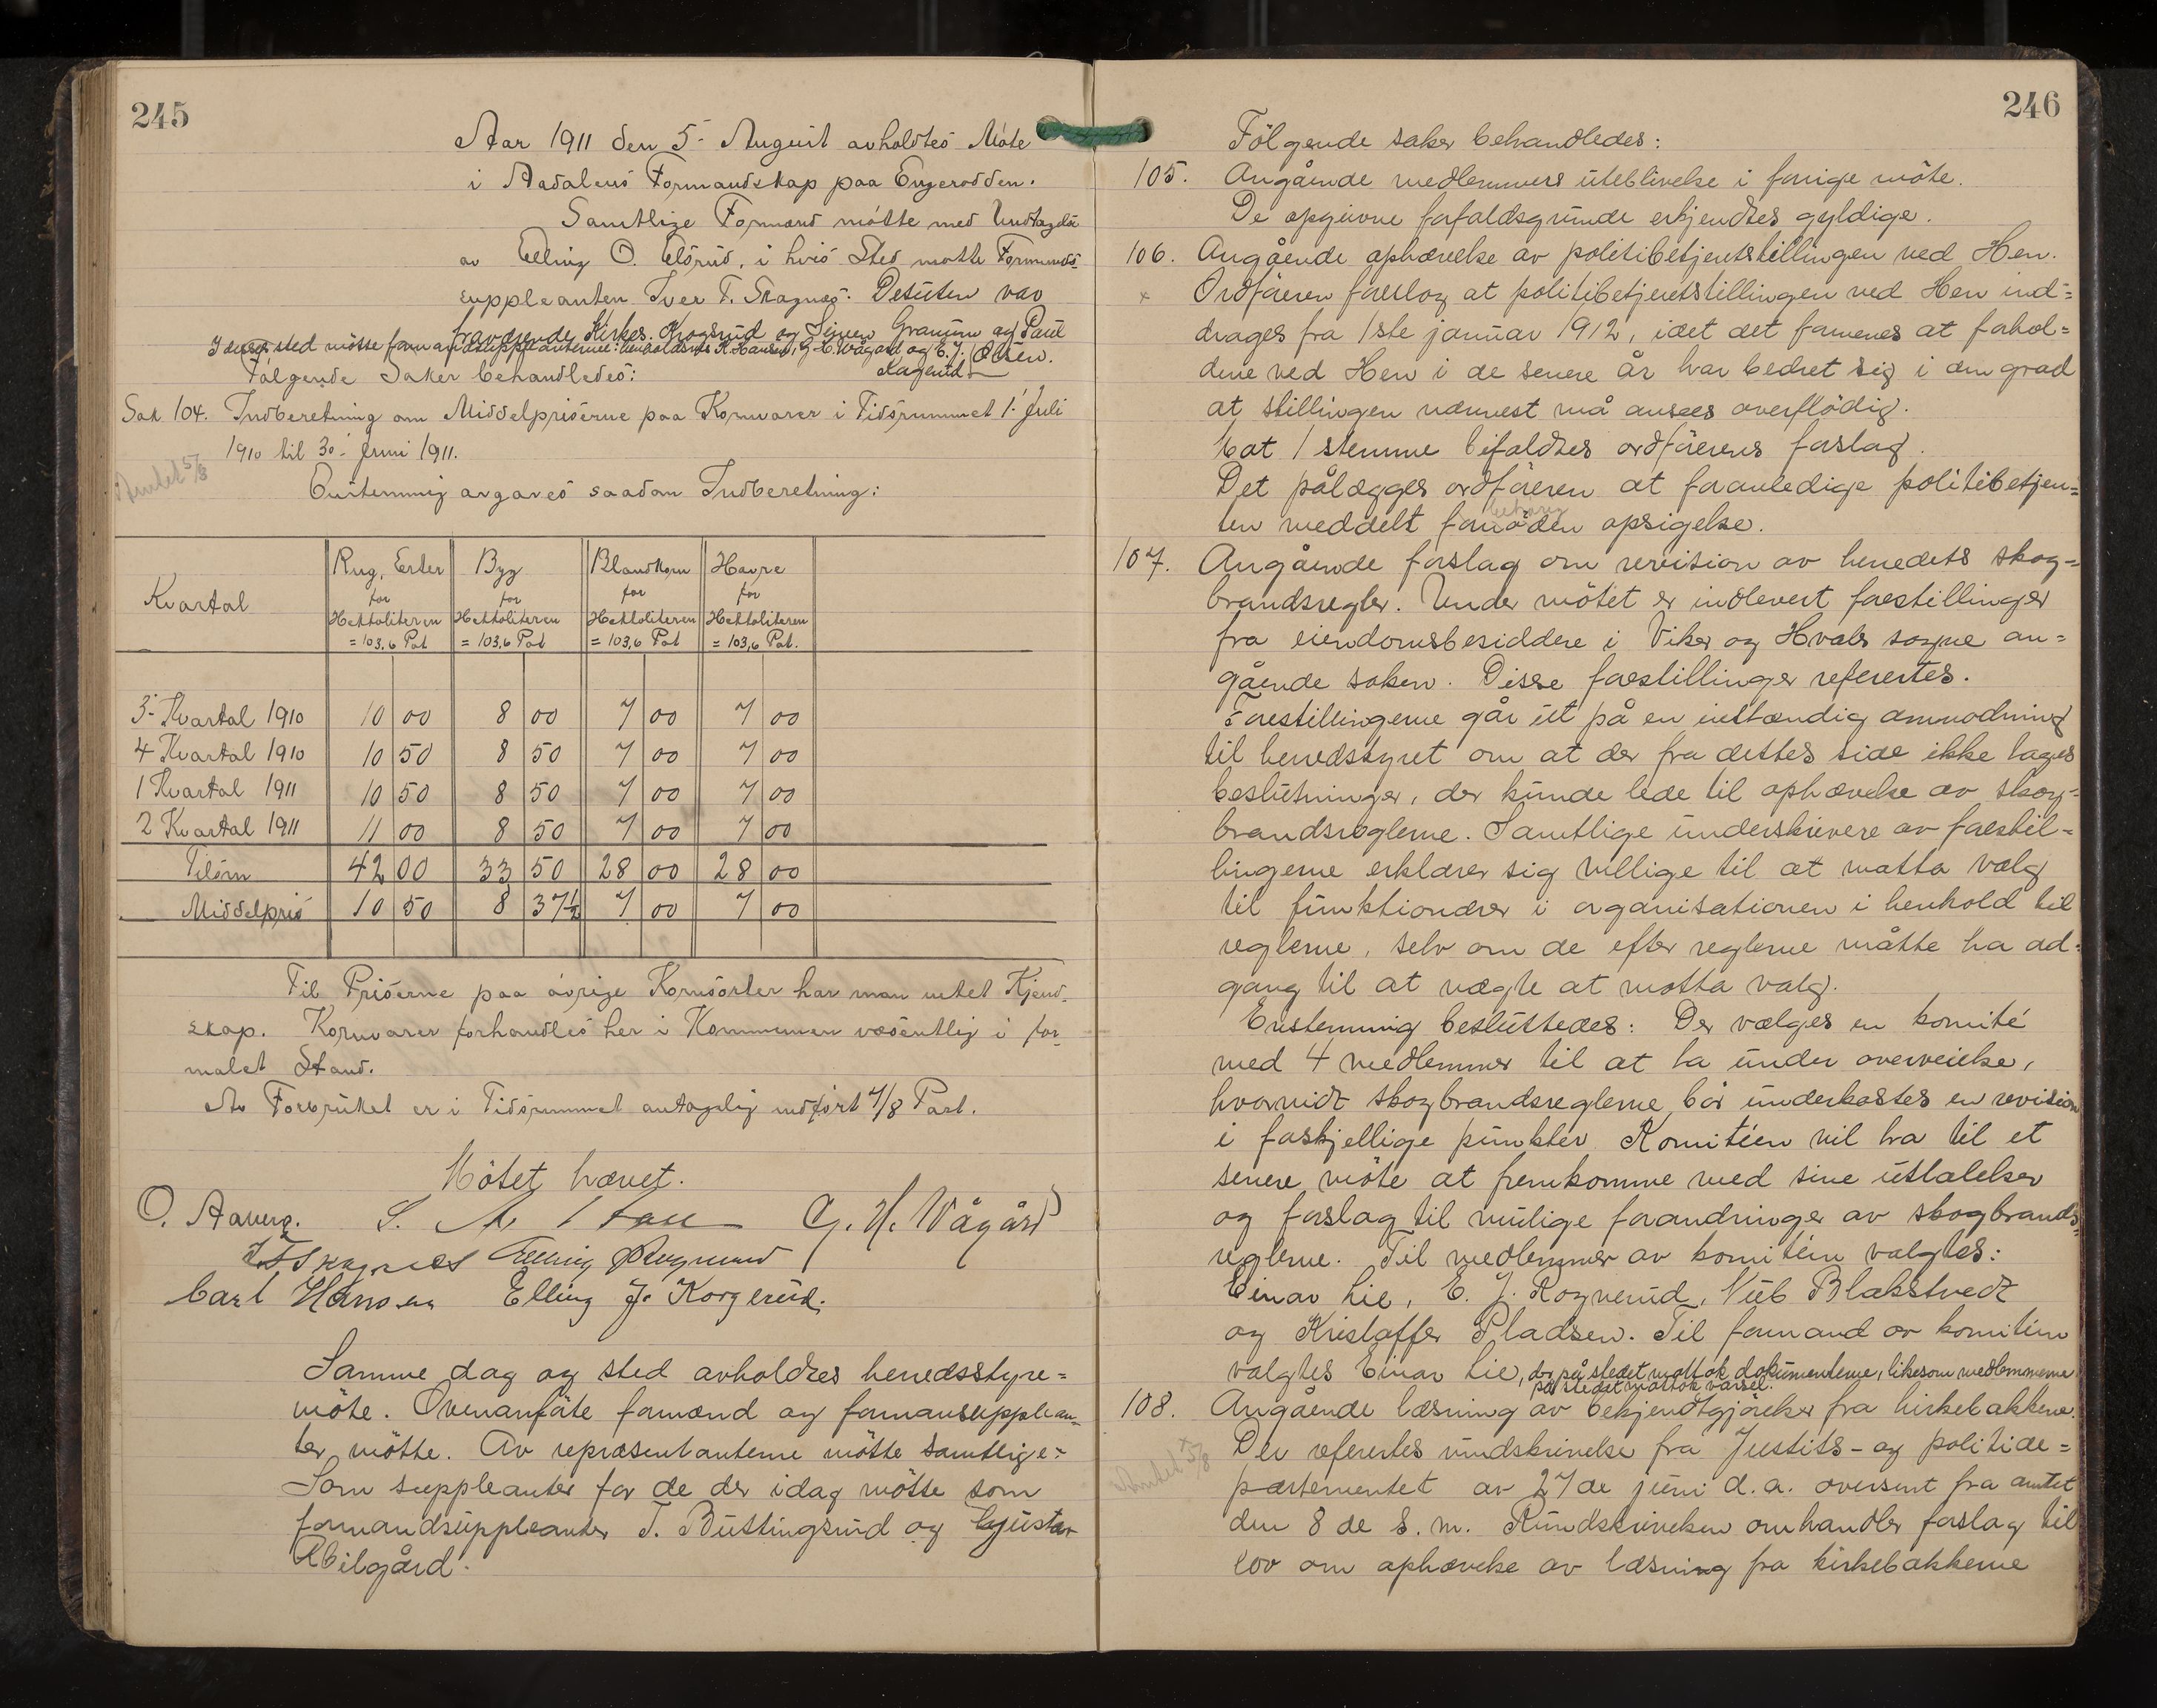 245
Aar 1911 den 5- August avholdtes Möte
i Aadalens Formandskap paa Engerodden.
Samtlige Formænd mötte med Undtagelse
av Elling O. Elsrud, i hvis Sted mötte Formands-
suppleanten Iver T. Skagnæs. Desuten var
fraværende Kirkes. Krogsrud og Simen Granum og Paul
Olsen.
I deres sted mötte formandsuppleanterne: henholdsvis K. Hansen, G. H. Wågård og E. J.
Fölgende Saker behandledes:
Sak 104. Indberetning om Middelpriserne paa Kornvarer i Tidsrummet 1- Juli
1910 til 30- Juni 1911.
Amtet 5/8
Enstemmig avgaves saadan Indberetning:
Kvartal | Rug, Erter for Hektoliteren = 103,6 Pot | Byg for Hektoliteren = 103,6 Pot | Blandkorn for Hektoliteren = 103,6 Pot | Havre for Hektoliteren = 103,6 Pot.
3- Kvartal 1910 10 00 8 00 7 00 7 00
4 Kvartal 1910 10 50 8 50 7 00 7 00
1 Kvartal 1911 10 50 8 50 7 00 7 00
2 Kvartal 1911 11 00 8 50 7 00 7 00
Tilsm 42 00 33 50 28 00 28 00
Middelpris 10 50 8 37½ 7 00 7 00
Til Priserne paa övrige Kornsorter har man intet Kjend-
skap. Kornvarer forhandles her i Kommunen væsentlig i for-
malet Stand.
Av Forbruket er i Tidsrummet antagelig indfört 7/8 Part.
Mötet hævet.
O. Aaverg. G. H. Wågård
I. T. Skagnæs Elling
Carl Hansen Elling J. Korgerud.
Samme dag og sted avholdtes herredsstyre=
möte. Ovenanförte formænd og formansupplean-
ter mötte. Av repræsentanterne mötte samtlige:-
Som suppleanter for de der idag mötte som
formandsuppleanter T. Buttingsrud og Gustav
Abilgård.
246
Fölgende saker behandledes:
105. Angående medlemmers uteblivelse i forrige möte.
De opgivne forfaldsgrunde erkjendtes gyldige.
106. Angående ophævelse av politibetjentstillingen ved Hen.
x Ordföreren foreslog at politibetjentstillingen ved Hen ind=
drages fra 1ste januar 1912, idet det formenes at forhol=
dene ved Hen i de senere år har bedret sig i den grad
at stillingen nærmest må ansees overflödig.
Mot 1 stemme bifaldtes ordförerens forslag.
Det pålægges ordföreren at foranledige politibetjen=
ten meddelt fornöden opsigelse.
107. Angående forslag om revision av herredets skog-=
brandsregler. Under mötet er indlevert forestillinger
fra eiendomsbesiddere i Viker og Hvals sogne an=
gående saken. Disse forestillinger refertes.
Forestillingerne går ut på en instændig anmodning
til herredsstyret om at der fra dettes side ikke tages
beslutninger, der kunde lede til ophævelse av skog-
brandsreglerne. Samtlige underskrivere av forestil=
lingerne erklærer sig villige til at motta valg
til funktionærer i organisationen i henhold til
reglerne, selv om de efter reglerne måtte ha ad=
gang til at nægte at motta valg.
Enstemmig besluttedes: Der vælges en komité
med 4 medlemmer til at ta under overveielse,
hvorvidt skogbrandsreglerne bör underkastes en revision
i forskjellige punkter. Komitéen vil ha til et
senere möte at fremkomme med sine uttalelser
og forslag til mulige forandringer av skogbrands=
reglerne. Til medlemmer av komitéen valgtes:
Einar Lie, E. J. Rognerud, Nub Blakstvedt
og Kristoffer Pladsen. Til formand av komitéen
valgtes Einar Lie, der på stedet mottok dokumenterne, likesom medlemmerne
på stedet mottok varsel.
108. Angående læsning av bekjendtgjörelser fra kirkebakkene.
Amtet 5/8
Der refertes rundskrivelse fra Justits- og politide=
partementet av 27de juni d.a. oversent fra amtet
den 8 de s.m. Rundskrivelsen omhandler forslag til
lov om ophævelse av læsning fra kirkebakkerne